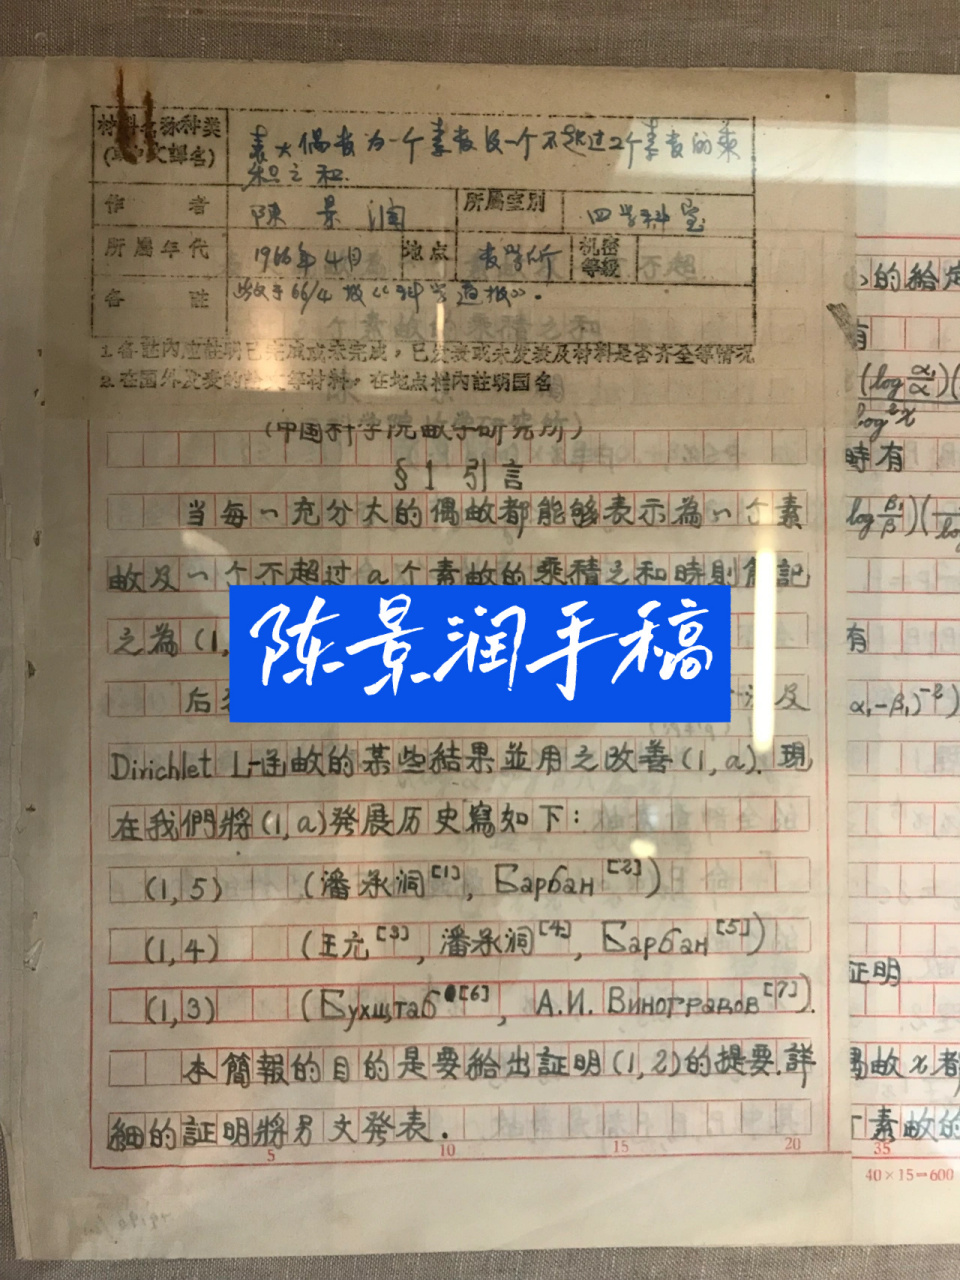 材料名称种类 表大偶数为一个素数及一个不超过2个素数的乘
(或中文譯名) 积之和.
作者 陈景润 所属室别 四学科室
所属年代 1966年4月 地点 数学所 机密等級
各註 66/4 《科学通报》.
1.各註內应註明已完成或未完成,已发表或未发表及材料是否齐全等情况
2.在国外发表的 等材料,在地点栏內註明国名
(中国科学院数学研究所)
§1 引言
当每一充分大的偶数都能够表示為一个素
数及一个不超过a个素数的乘積之和時則簡記
之為(1,
陈景润手稿
后 及
Dirichlet L-函数的某些結果並用之改善(1,a).現
在我們將(1,a)發展历史寫如下:
(1,5) (潘承洞[1], Барбан[2])
(1,4) (王元[3], 潘承洞[4], Барбан[5])
(1,3) (Бухштаб[6], А.И. Виноградов[7]).
本簡報的目的是要給出証明(1,2)的提要.詳
細的証明將另文發表.
5 10 15 20
的給定
有
(log α₁/α)(
log²x
時有
log β₁/β)(
有
α₁-β₁)⁻²)
証明
偶数x都
素数的
35
40×15=600